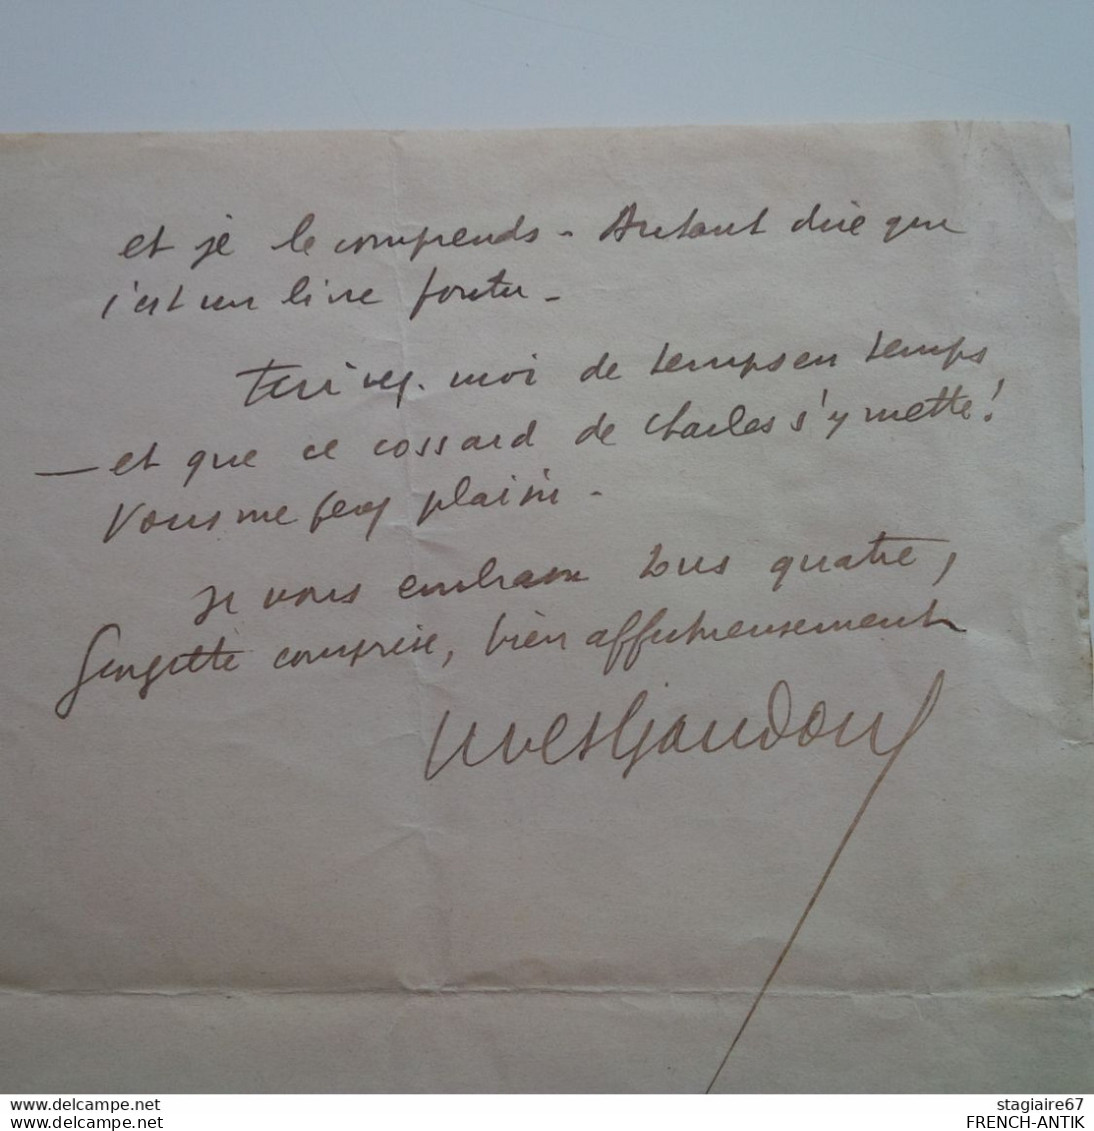 et je le comprends - Autant dire que
c'est un livre foutu -
Ecrivez-moi de temps en temps
— et que ce cossard de Charles s'y mette !
Vous me ferez plaisir -
Je vous embrasse tous quatre,
comprise, bien affectueusement
Yves
www.delcampe.net
stagiaire67
FRENCH-ANTIK